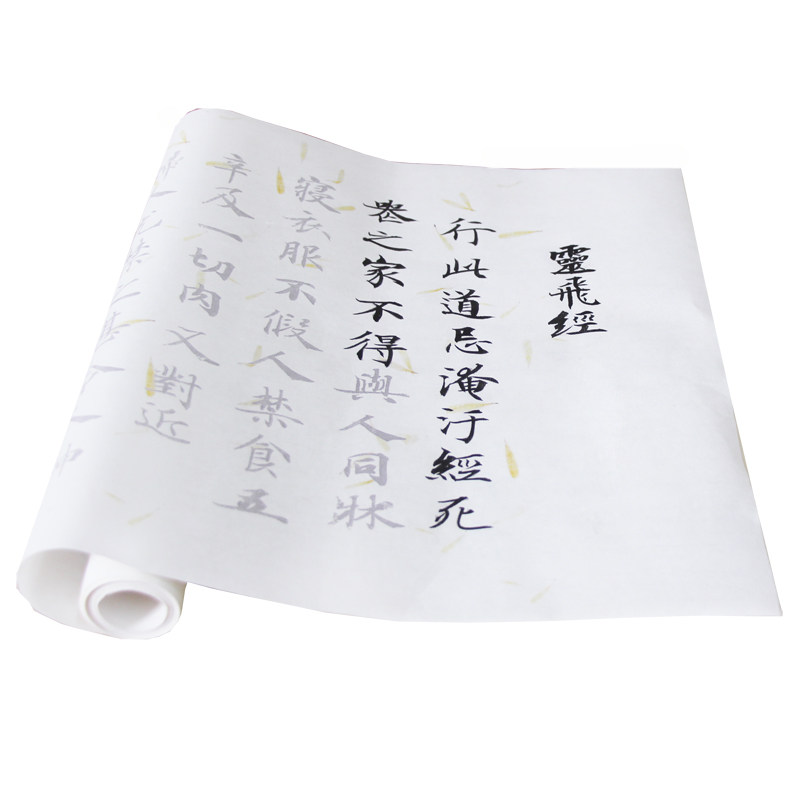 靈飛經
行此道忌淹汙經死
喪之家不得與人同牀
寢衣服不假人禁食五
辛及一切肉又對近